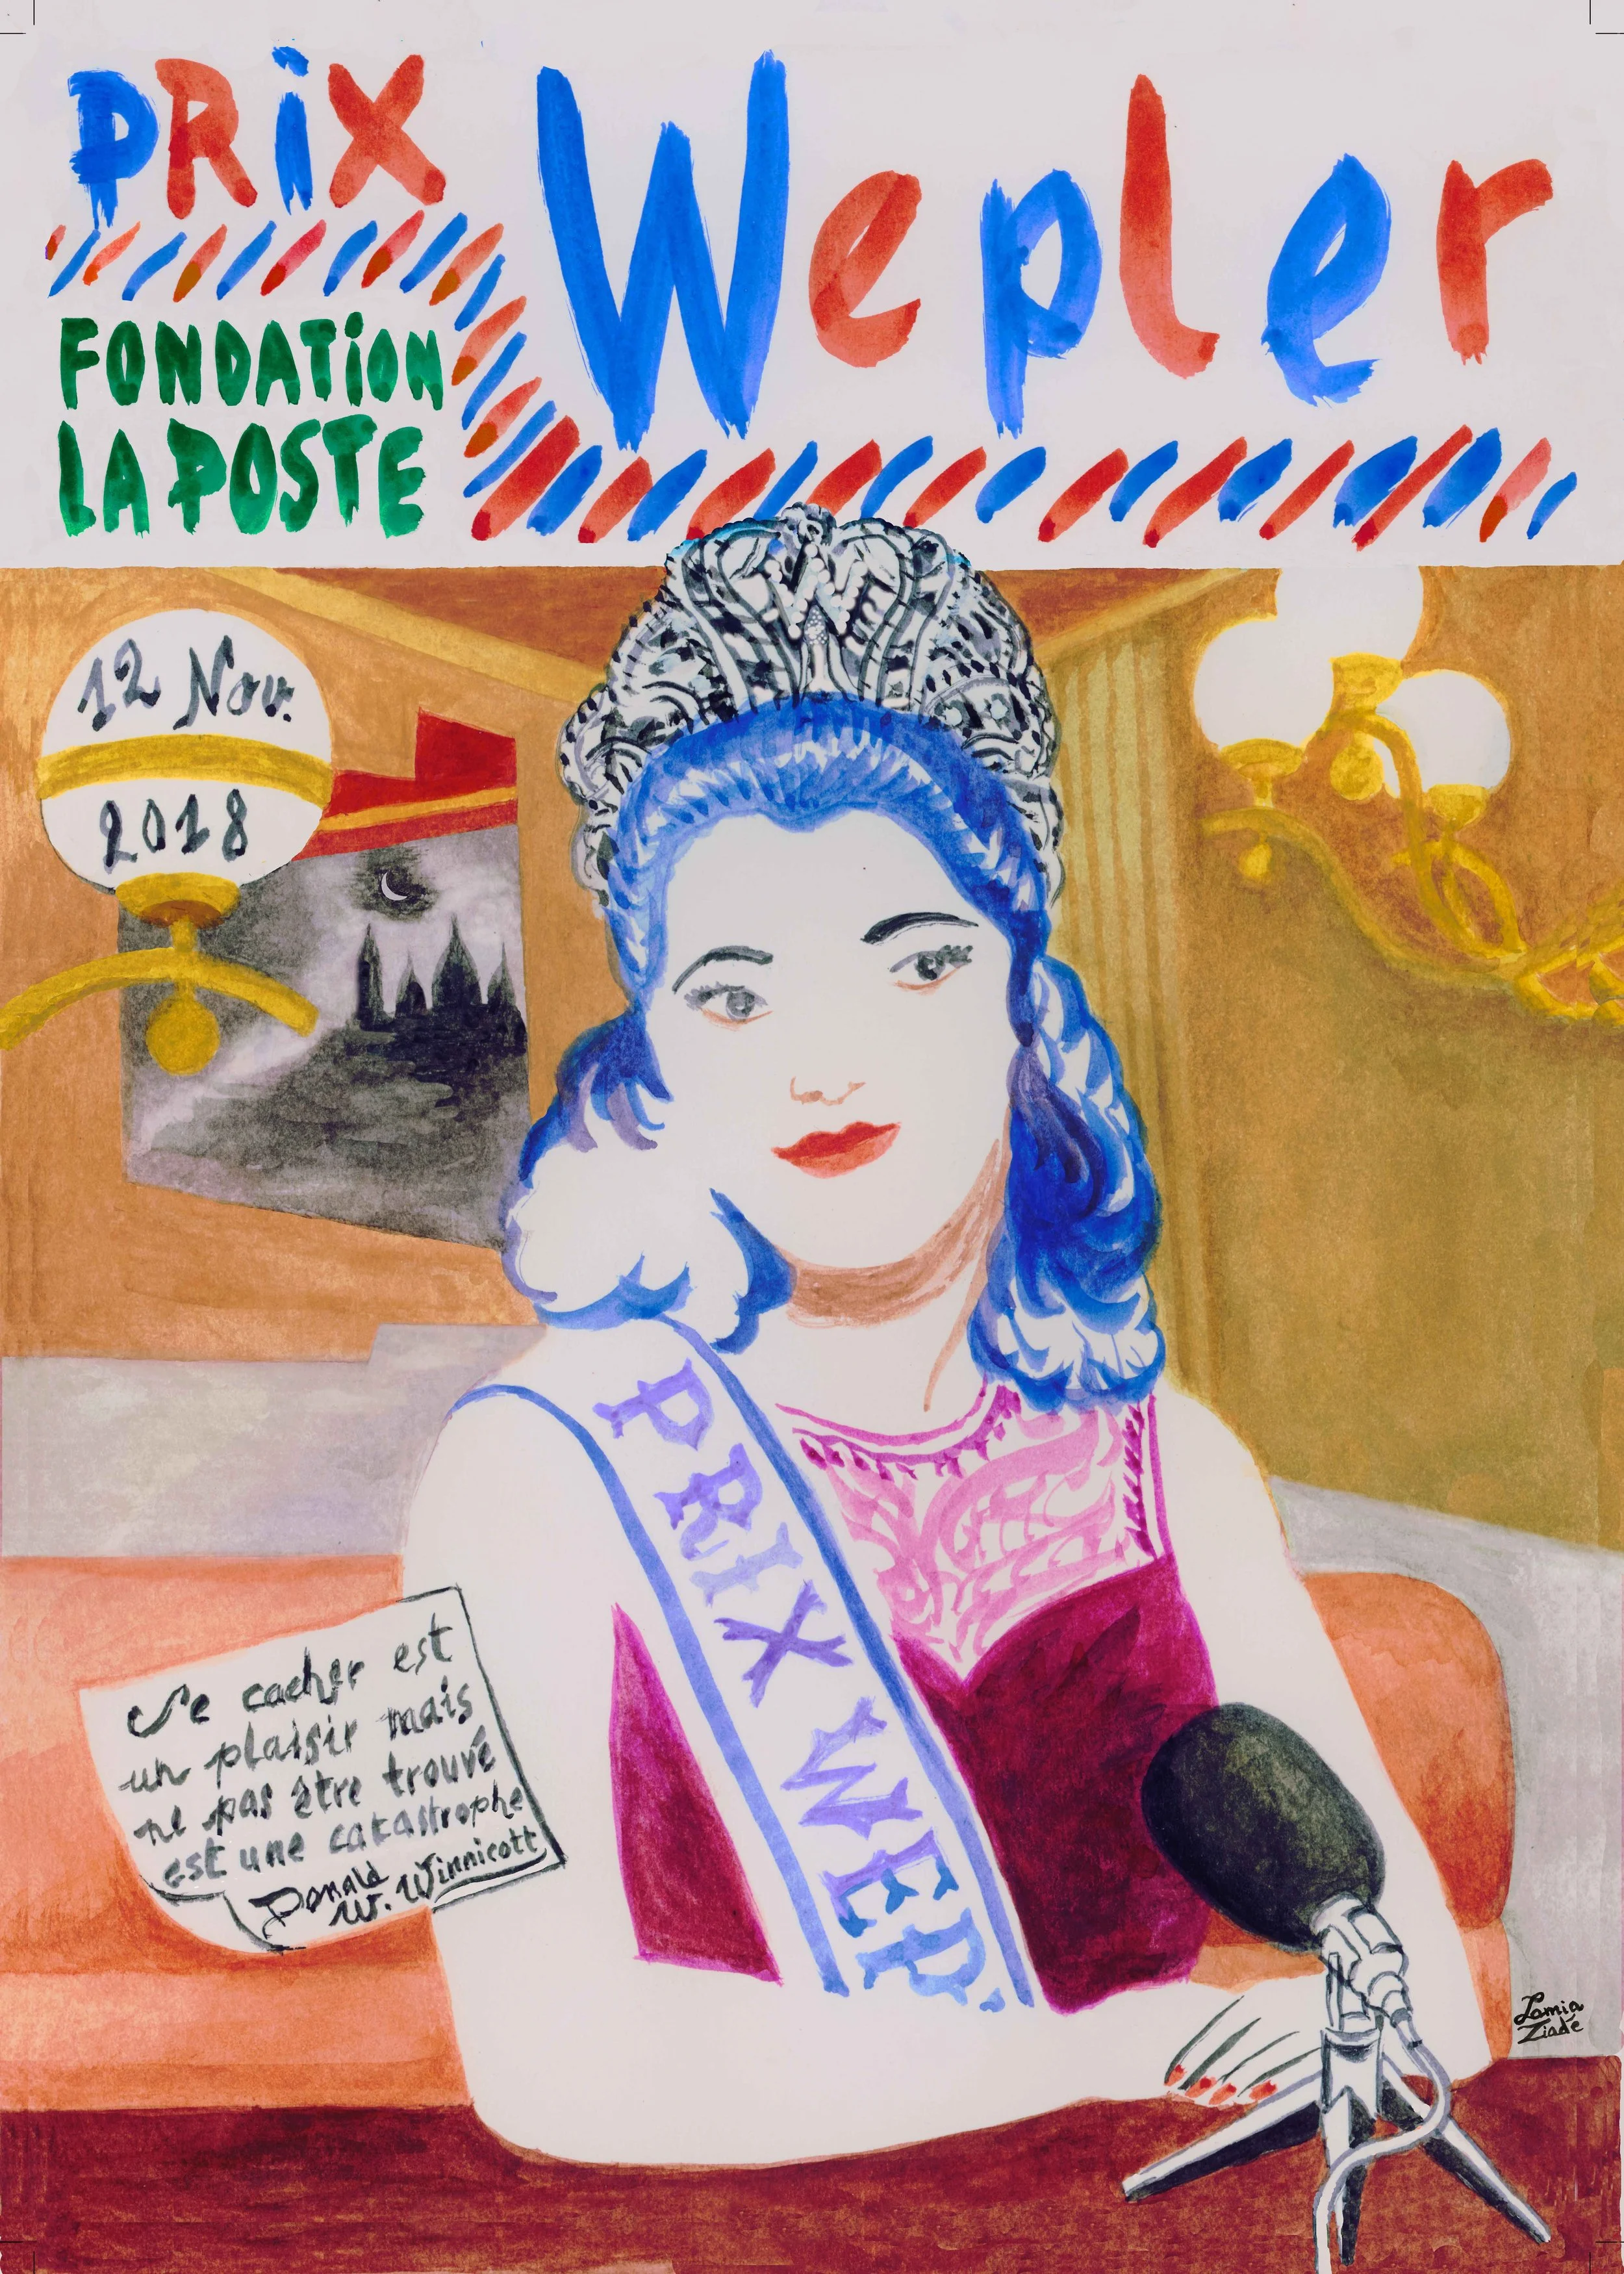 PRiX
Wepler
FONDATiON
LA POSTE
12 Nov.
2018
W
PRIX WEP
Se cacher est
un plaisir mais
ne pas être trouvé
est une catastrophe
Donald
W. Winnicott
Lamia
Ziadé